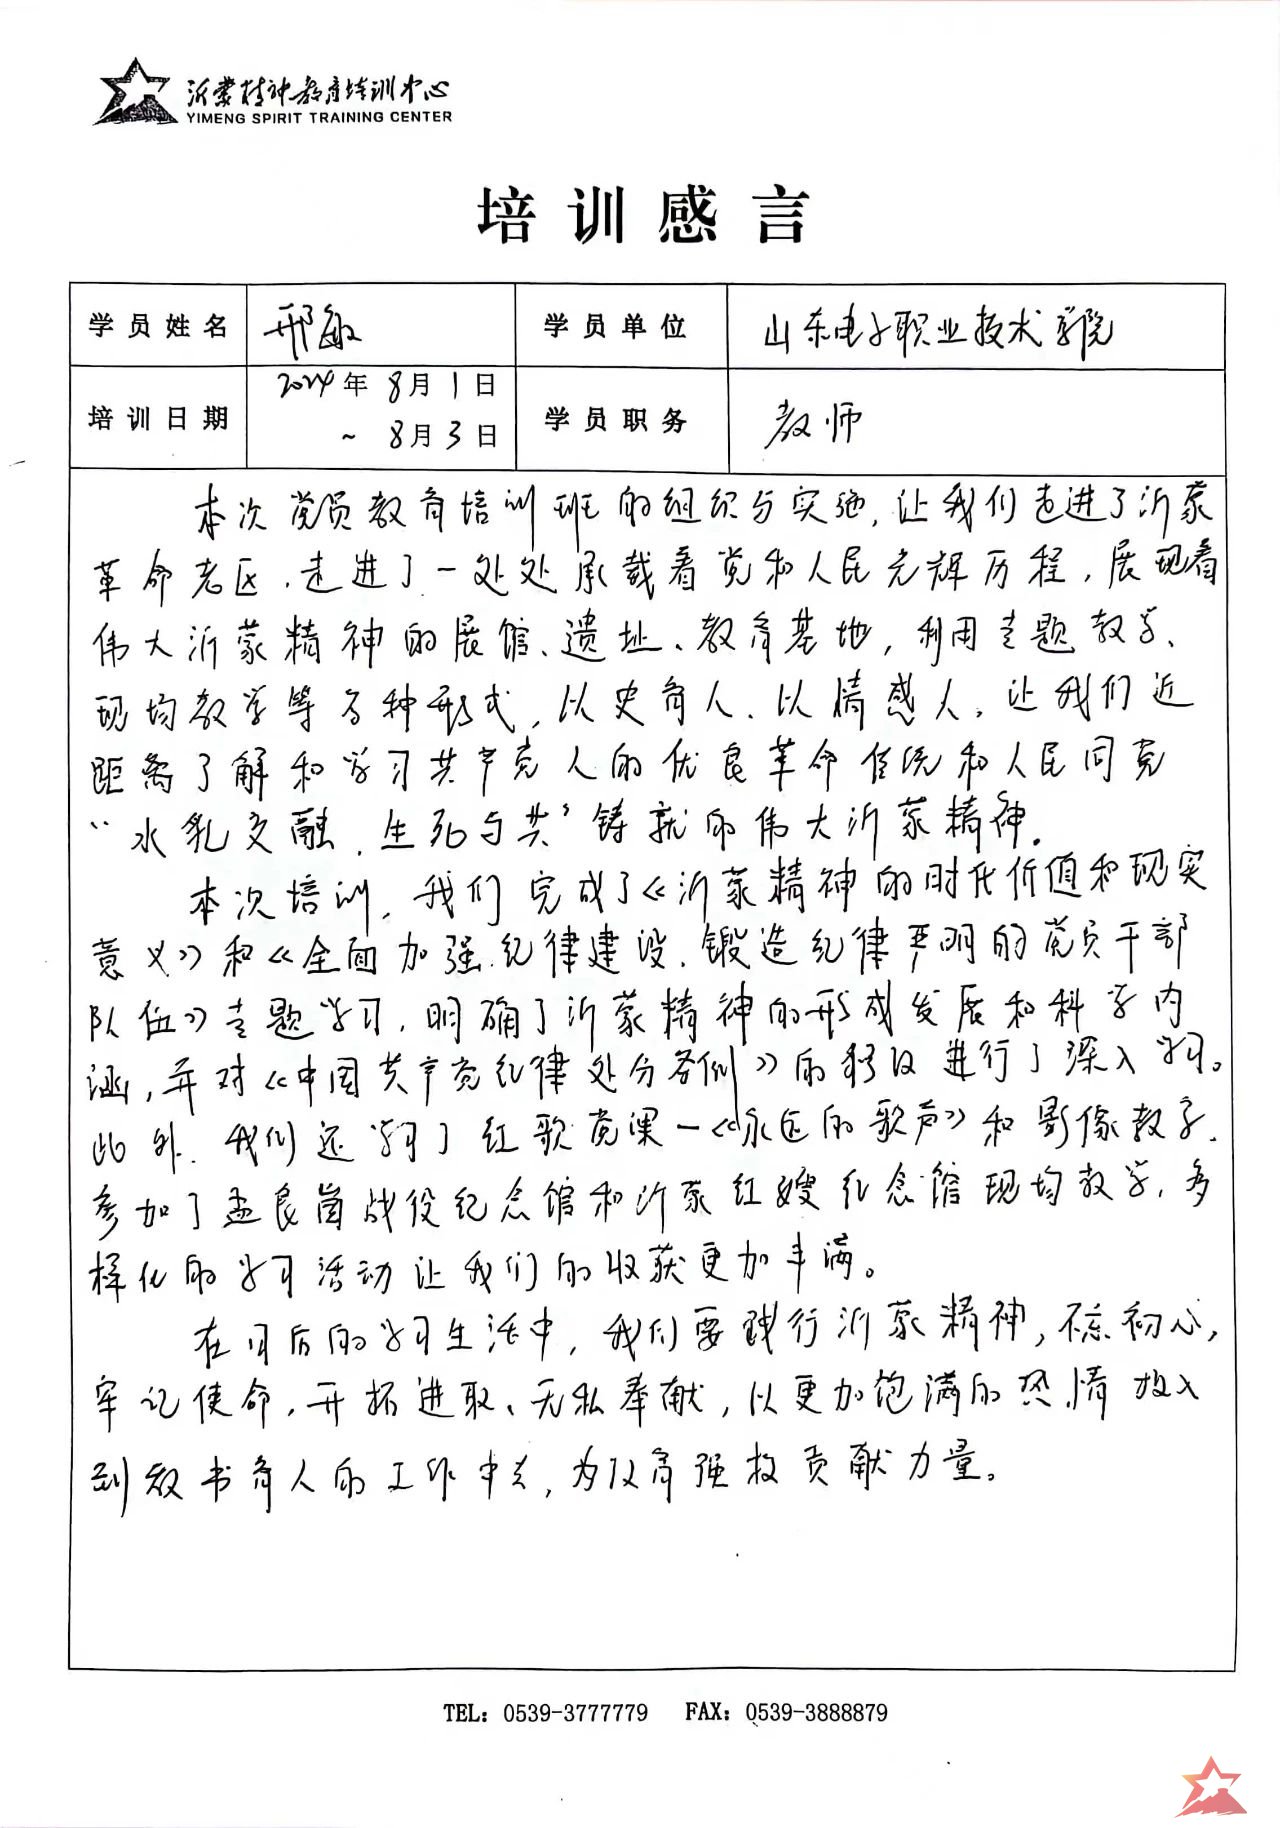 沂蒙精神教育培训中心
YIMENG SPIRIT TRAINING CENTER
培训感言
学员姓名 邢敏 学员单位 山东电子职业技术学院
培训日期 2024年8月1日 ~8月3日 学员职务 教师
本次党员教育培训班的组织与实施,让我们走进了沂蒙
革命老区,走进了一处处承载着党和人民光辉历程,展现着
伟大沂蒙精神的展馆、遗址、教育基地,利用专题教学、
现场教学等多种形式,以史育人、以情感人,让我们近
距离了解和学习共产党人的优良革命传统和人民同党
“水乳交融、生死与共”铸就的伟大沂蒙精神。
本次培训,我们完成了《沂蒙精神的时代价值和现实
意义》和《全面加强纪律建设,锻造纪律严明的党员干部
队伍》专题学习,明确了沂蒙精神的形成发展和科学内
涵,并对《中国共产党纪律处分条例》的修改进行了深入学习。
此外,我们还学习了红歌党课—《永远的歌声》和影像教学,
参加了孟良崮战役纪念馆和沂蒙红嫂纪念馆现场教学,多
样化的学习活动让我们的收获更加丰满。
在日后的学习生活中,我们要践行沂蒙精神,不忘初心,
牢记使命,开拓进取、无私奉献,以更加饱满的热情投入
到教书育人的工作中去,为教育强校贡献力量。
TEL: 0539-3777779 FAX: 0539-3888879